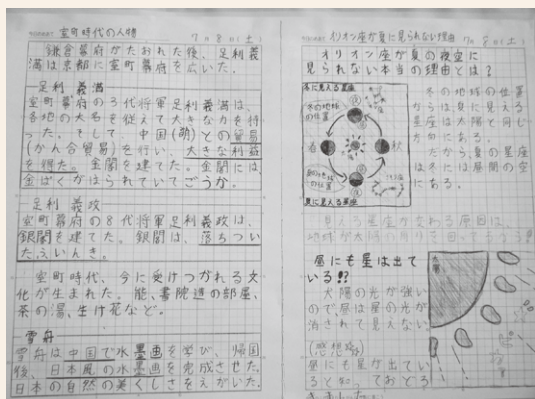 室町時代の人物
7月8日(土)
鎌倉幕府がたおれた後、足利義
満は京都に室町幕府を広いた。
足利 義満
室町幕府の3代将軍足利義満は、
各地の大名を従えて大きな力を持
った。そして、中国(明)との貿易
(かん合貿易)を行い、大きな利益
を得た。金閣を建てた。金閣には
金ぱくがはられていてごうか。
足利 義政
室町幕府の8代将軍足利義政は、
銀閣を建てた。銀閣は、落ちつい
たふんいき。
室町時代、今に受けつがれる文
化が生まれた。能、書院造の部屋、
茶の湯、生け花など。
雪舟
雪舟は中国で水墨画を学び、帰国
後、日本風の水墨画を完成させた。
日本の自然の美くしさをえがいた。
オリオン座が夏に見られない理由
7月8日(土)
オリオン座が夏の夜空に
見られない本当の理由とは?
冬に見える星座
冬の地球
の位置
春
秋
夏の地球
の位置
夏に見える星座
冬の地球の位置
からは夏に見える
星座は太陽と同じ
方向にある。
だから、夏の星座
は冬には昼間の空
にある。
見える星座が変わる原因は、
地球が太陽の周りを回ってるから
昼にも星は出て
いる!?
太陽の光が強い
ので昼は星の光が
消されて見えない。
太陽
(感想)
昼にも星が出てい
ると知っておどろ
きました。